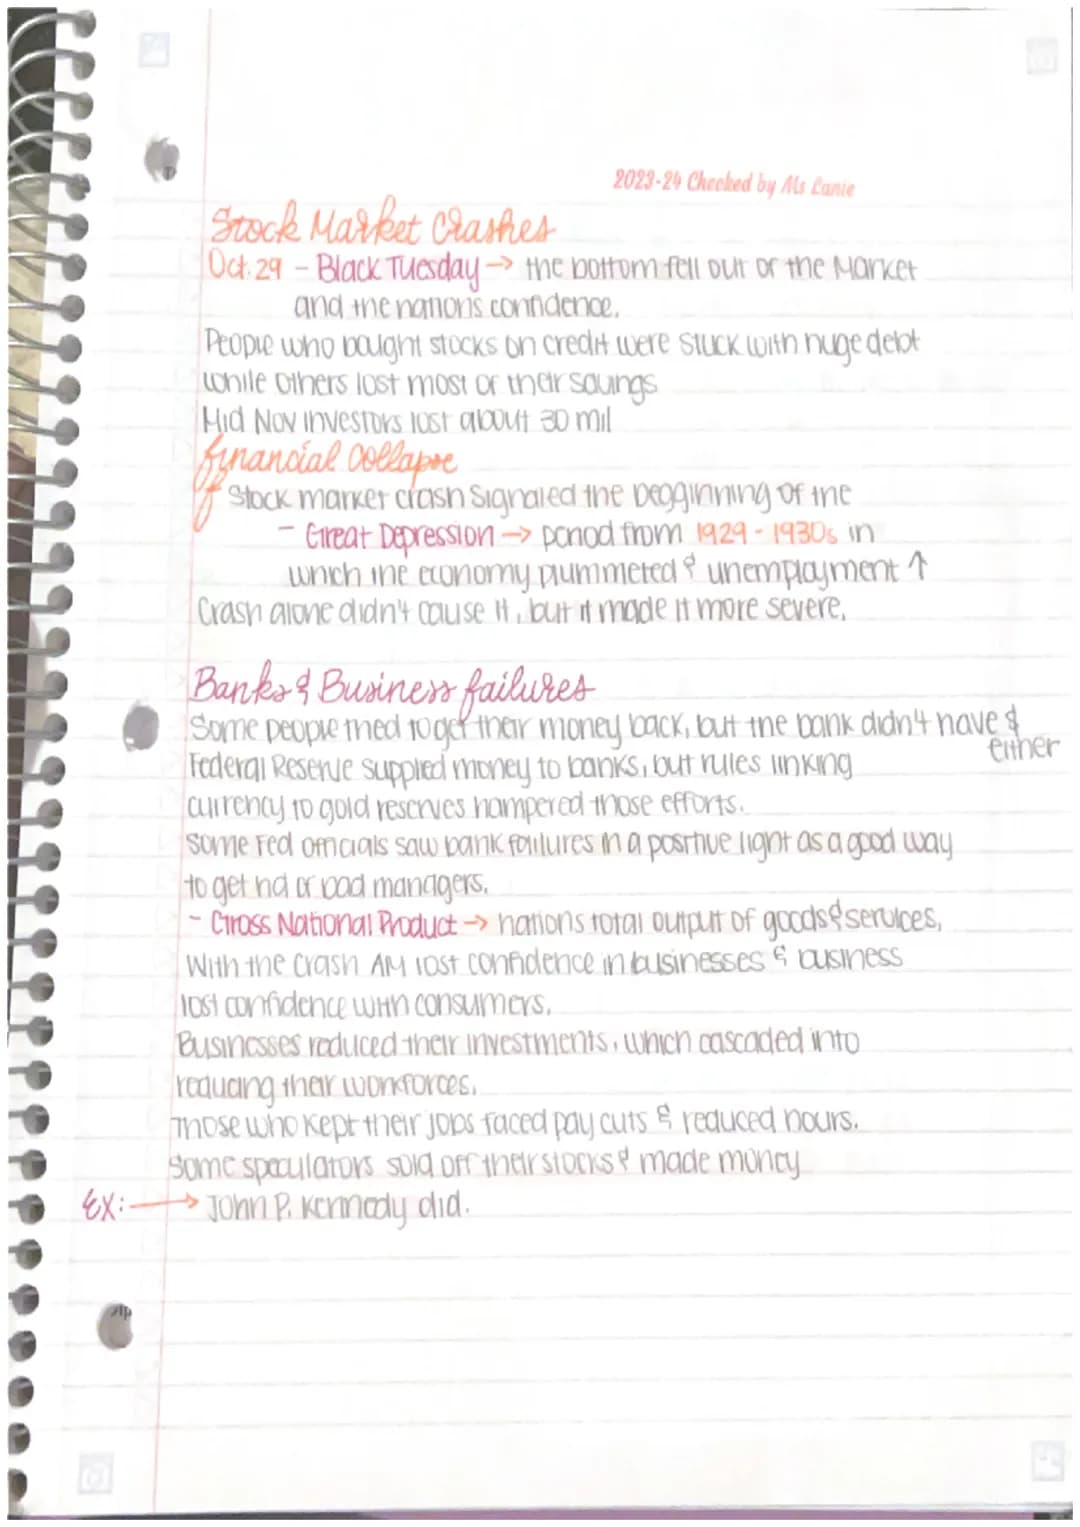 2023-24 Checked by Ms Lanie
Stock Market Crashes
Oct. 29 - Black Tuesday → the bottom fell out of the Market
and the nation's confidence.
People who bought stocks on credit were stuck with huge debt
while others lost most of their savings
Mid Nov investors lost about 30 mil
financial collapse
Stock market crash signaled the begginning of the
- Great Depression → period from 1929 - 1930s in
which the economy plummeted & unemployment ↑
Crash alone didn't cause it, but it made it more severe.
Banks & Business failures
Some people tried to get their money back, but the bank didn't have $
either
Federal Reserve supplied money to banks, but rules linking
currency to gold reserves hampered those efforts.
Some Fed officials saw bank failures in a positive light as a good way
to get rid of bad managers.
- Gross National Product → nation's total output of goods & services.
With the crash AM lost confidence in businesses & business
lost confidence with consumers.
Businesses reduced their investments, which cascaded into
reducing their workforces.
Those who kept their jobs faced pay cuts & reduced hours.
Some speculators sold off their stocks & made money
EX: → John P. Kennedy did.